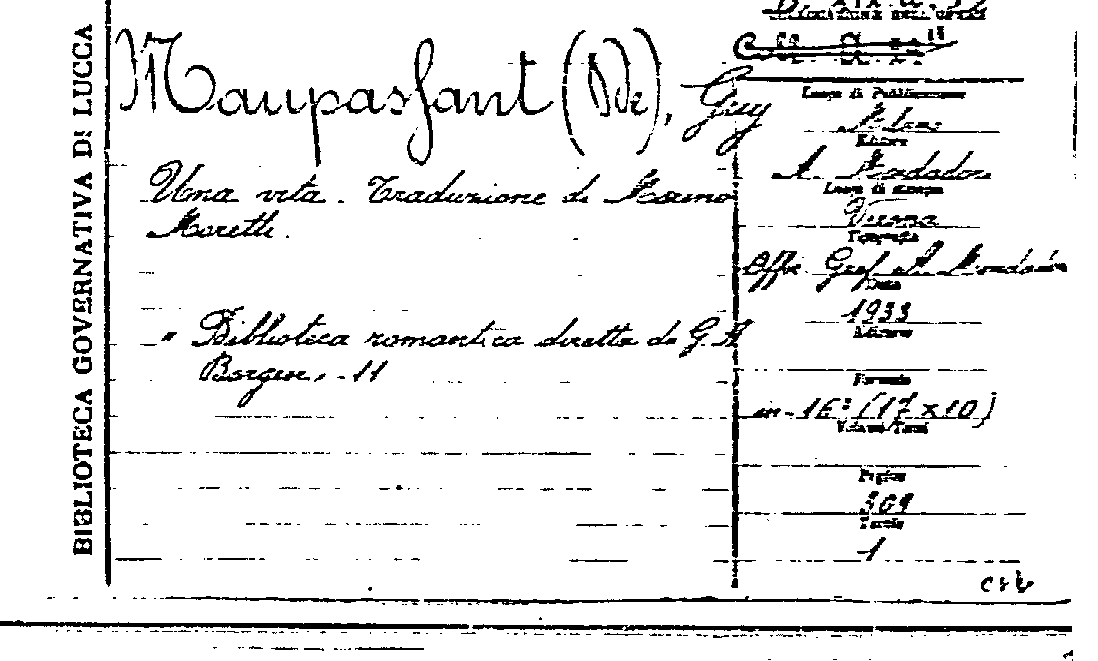 BIBLIOTECA GOVERNATIVA DI LUCCA
Maupassant (De), Guy
Una vita. Traduzione di Marino
Moretti.
" Biblioteca romantica diretta da G. A.
Borgese, - 11
Luogo di Pubblicazione
Milano
Editore
A. Mondadori
Luogo di stampa
Verona
Tipografia
Offic. Graf. A. Mondadori
Data
1933
Edizione
Formato
in-16° (17 x 10)
Volume/Tomi
Pagine
309
Tavole
1